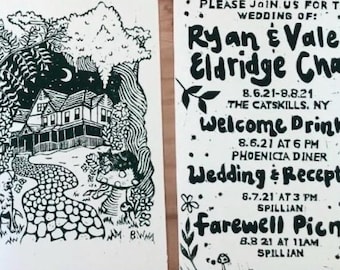 PLEASE JOIN US FOR T
WEDDING OF:
Ryan & Vale
Eldridge Cha
8.6.21-8.8.21
THE CATSKILLS, NY
Welcome Drink
8.6.21 AT 6 PM
PHOENICIA DINER
Wedding & Recept
8.7.21 AT 3 PM
SPILLIAN
Farewell Picn
8.8.21 AT 11AM
SPILLIAN